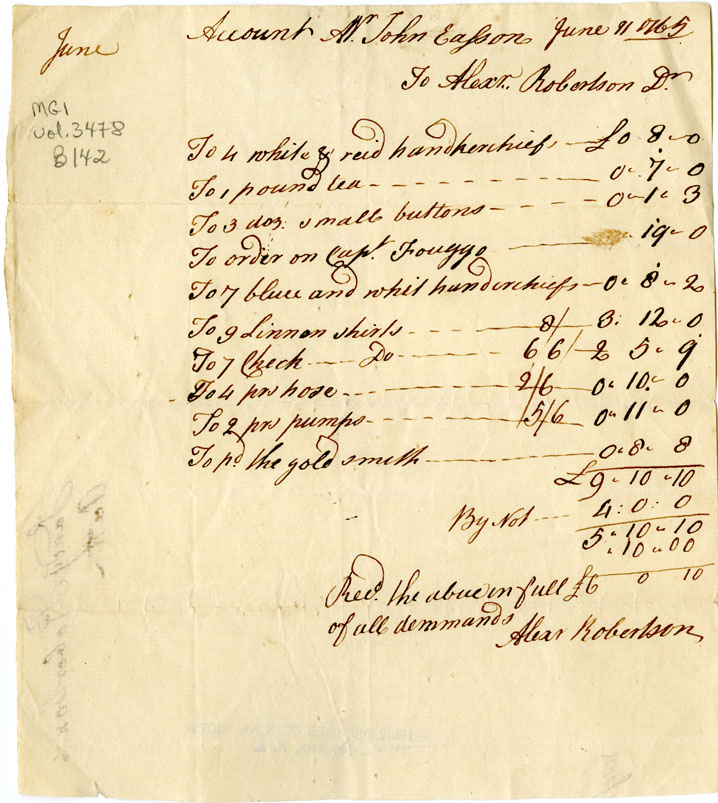 June
Account Mr. John Easson June 21 1765
To Alexr. Robertson Dr
MG1
vol. 3478
B142
To 4 white & reid handkerchiefs £0 8 0
To 1 pound tea 0 7 0
To 3 doz: small buttons 0 1 3
To order on Capt. Fouggo 19 0
To 7 blue and whit handerchiefs 0 8 2
To 9 Linnon shirts 8/ 3: 12 0
To 7 Check Do 6 6/ 2 5 9
To 4 prs hose 2/6 0 10 0
To 2 prs pumps 5/6 0 11 0
To pd the gold smith 0 8 8
£9 10 10
By Not 4: 0: 0
5 10 10
10 00
Recd. the abue in full £6 0 10
of all demmands
Alexr Robertson